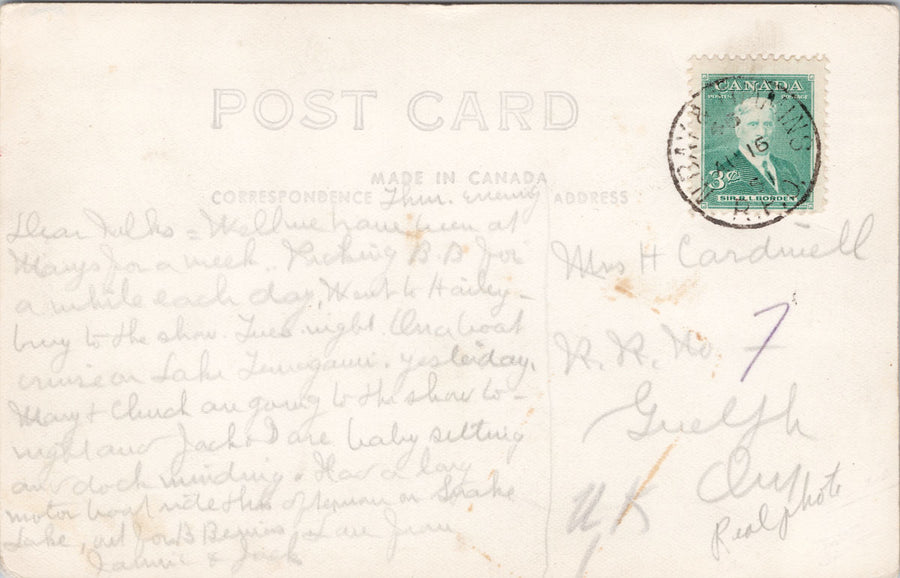 POST CARD
CANADA
POSTES POSTAGE
3¢
SIR R. L. BORDEN
N. BAY &
AU 16
R.P.O.
MADE IN CANADA
CORRESPONDENCE
ADDRESS
Thur. evening
Dear Folks = Well we have been at
Marys for a week. Picking B.B for
a while each day. Went to Hailey-
bury to the show Tues. night. Our boat
cruise on Lake Temagami. yesterday.
Mary & Chuck are going to the show to-
night and Jack & I are baby sitting
and dock minding. Had a long
motor boat ride this afternoon on Snake
Lake, out for B Berries. Love from
& Jack
Mrs H Cardwell
R. R. No. 7
Guelph
Ont
UK
Real photo